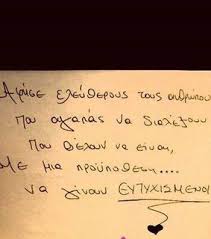 Αφησε ελευθερους τους ανθρωπους
που αγαπας να διαλεξουν
που θελουν να ειναι,
με μια προϋποθεση....
να γινουν ΕΥΤΥΧΙΣΜΕΝΟΙ